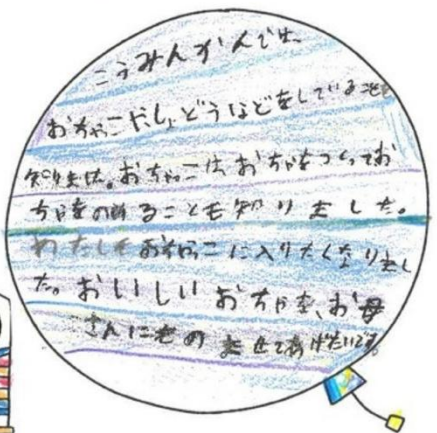 こうみんかんでは、
おちゃこやしょどうなどをしていることを
知りました。おちゃこはおちゃをつくってお
ちゃを飲ることも知りました。
わたしもおちゃこに入りたくなりまし
た。おいしいおちゃを、お母
さんにものませてあげたいです。